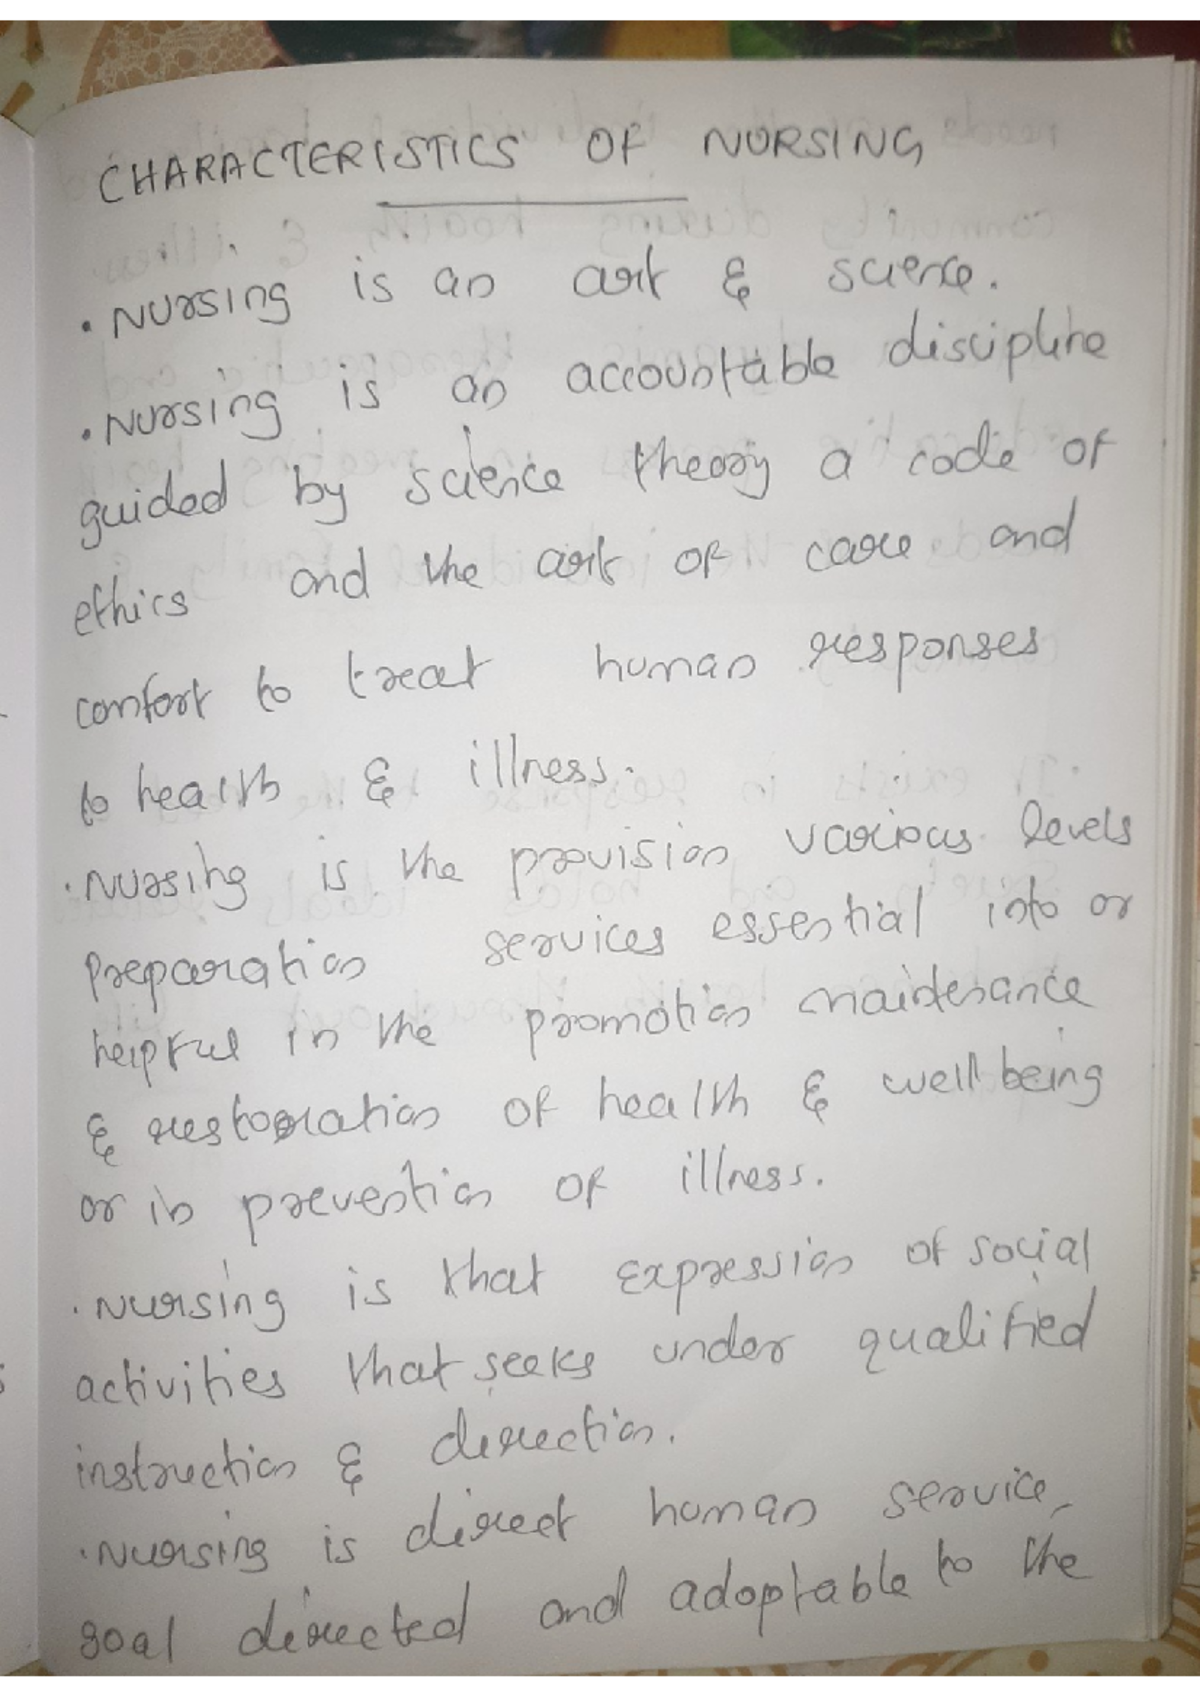 CHARACTERISTICS OF NURSING
• Nursing is an art & science.
• Nursing is an accountable discipline
guided by science theory a code of
ethics and the art of care and
comfort to treat human responses
to health & illness.
• Nursing is the provision various levels
preparation services essential into or
helpful in the promotion maintenance
& restoration of health & well being
or in prevention of illness.
• Nursing is that expression of social
activities that seeks under qualified
instruction & direction.
• Nursing is direct human service,
goal directed and adoptable to the